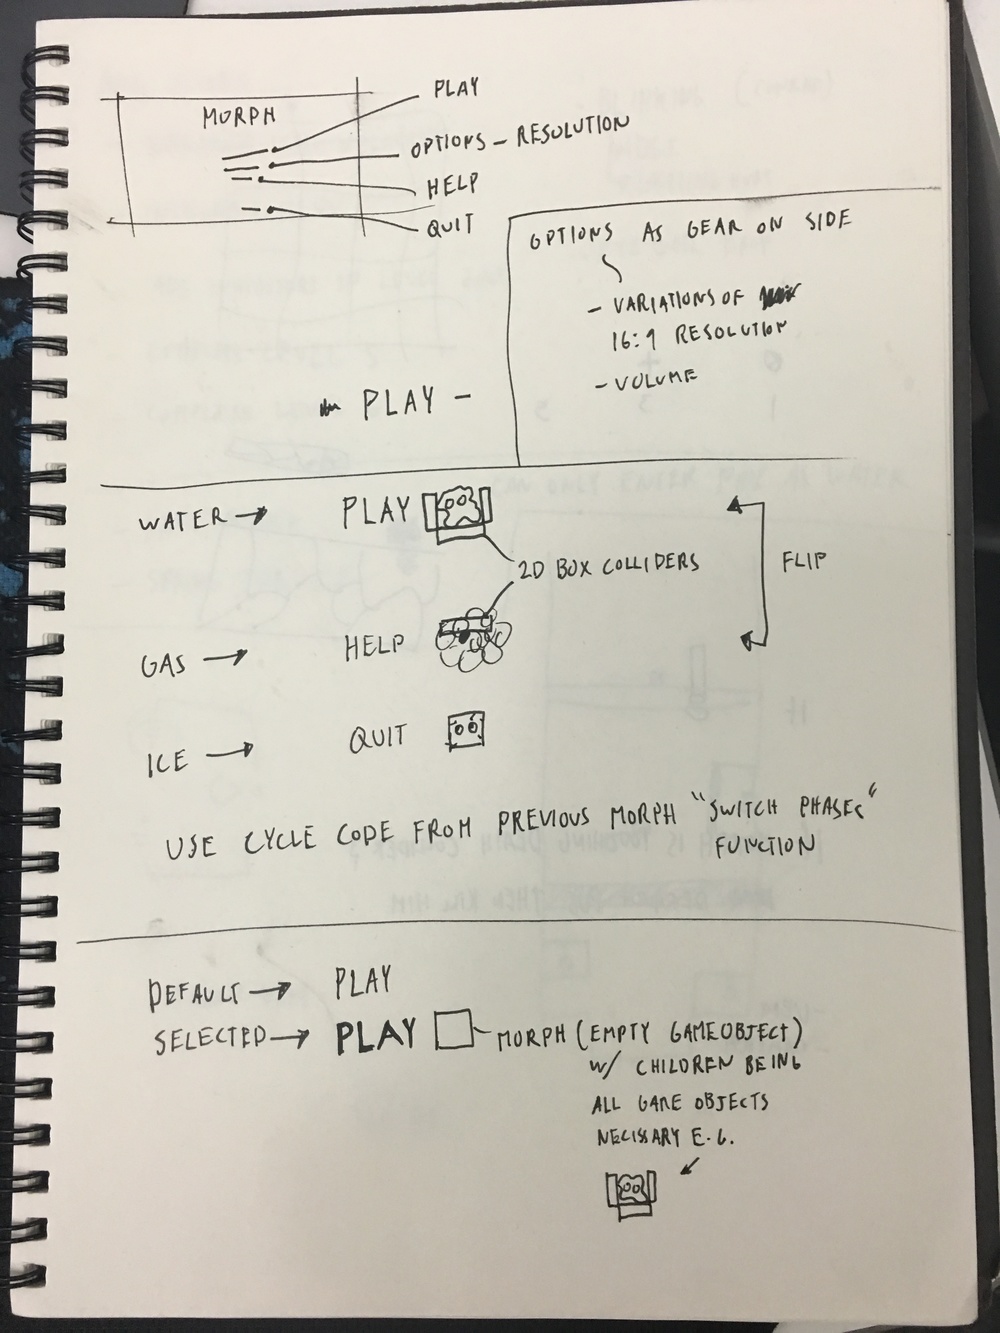 MORPH
PLAY
OPTIONS - RESOLUTION
HELP
QUIT
OPTIONS AS GEAR ON SIDE
- VARIATIONS OF
16:9 RESOLUTION
- VOLUME
PLAY -
WATER → PLAY
2D BOX COLLIDERS
FLIP
GAS → HELP
ICE → QUIT
USE CYCLE CODE FROM PREVIOUS MORPH "SWITCH PHASES"
FUNCTION
DEFAULT → PLAY
SELECTED → PLAY - MORPH (EMPTY GAMEOBJECT)
W/ CHILDREN BEING
ALL GAME OBJECTS
NECISSARY E.G.